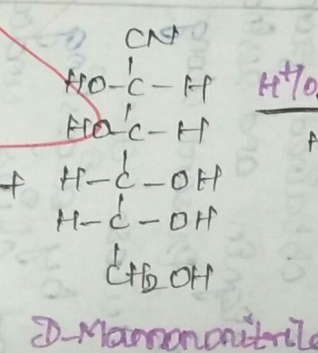 CN
HO-C-H H+/O
HO-C-H
+ H-C-OH
H-C-OH
CH2OH
D-Mannononitrile